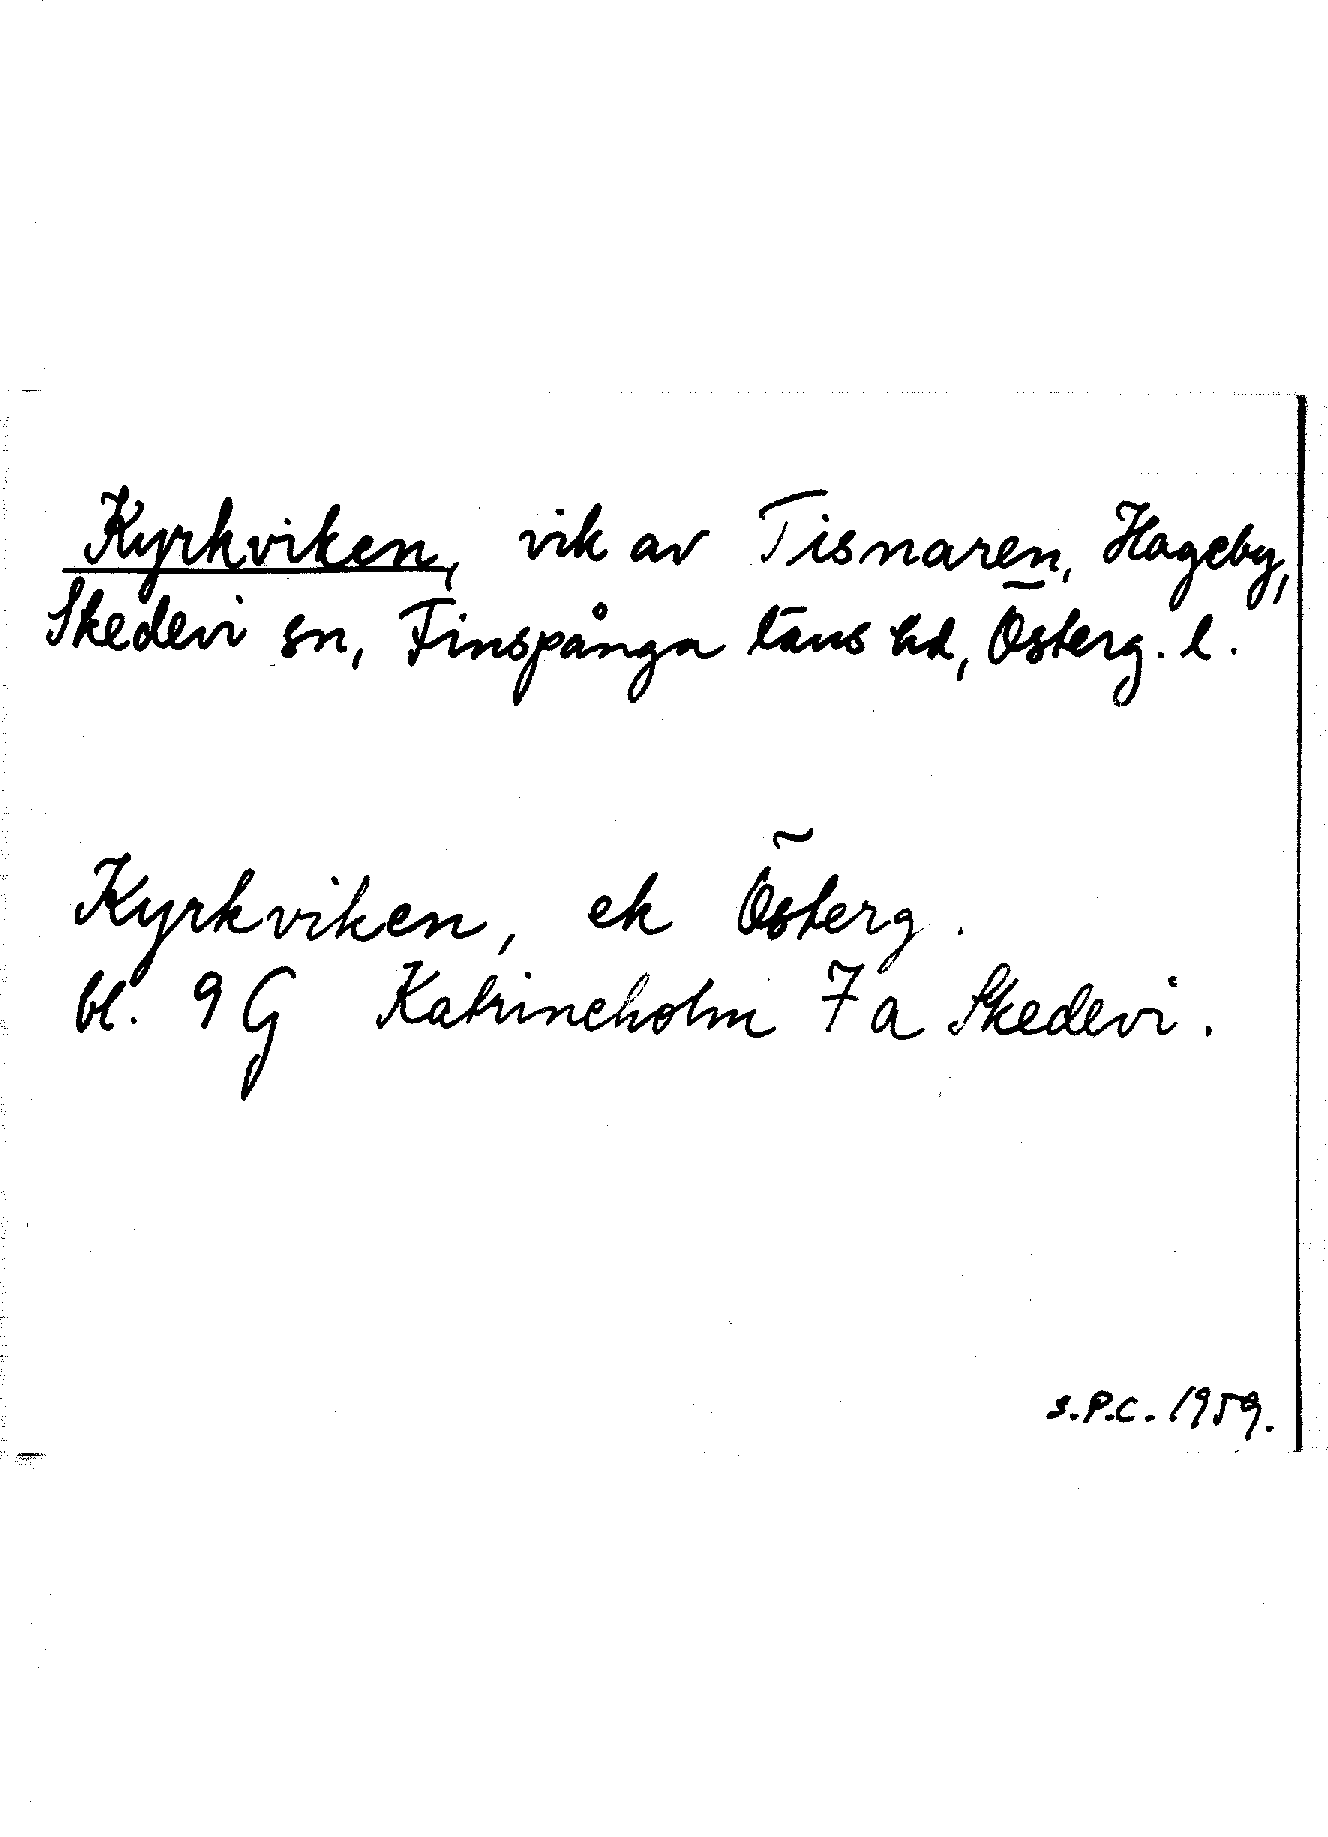 Kyrkviken, vik av Tisnaren, Hageby,
Skedevi sn, Finspånga läns hd, Österg. l.
Kyrkviken, ek Österg.
bl. 9 G Katrineholm 7 a Skedevi.
S.P.C. 1959.